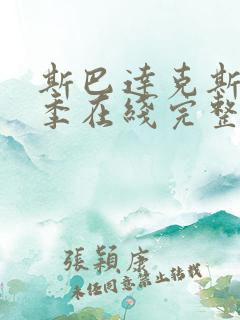 斯巴達克斯
季在綫完整
張穎康
未經同意禁止轉載